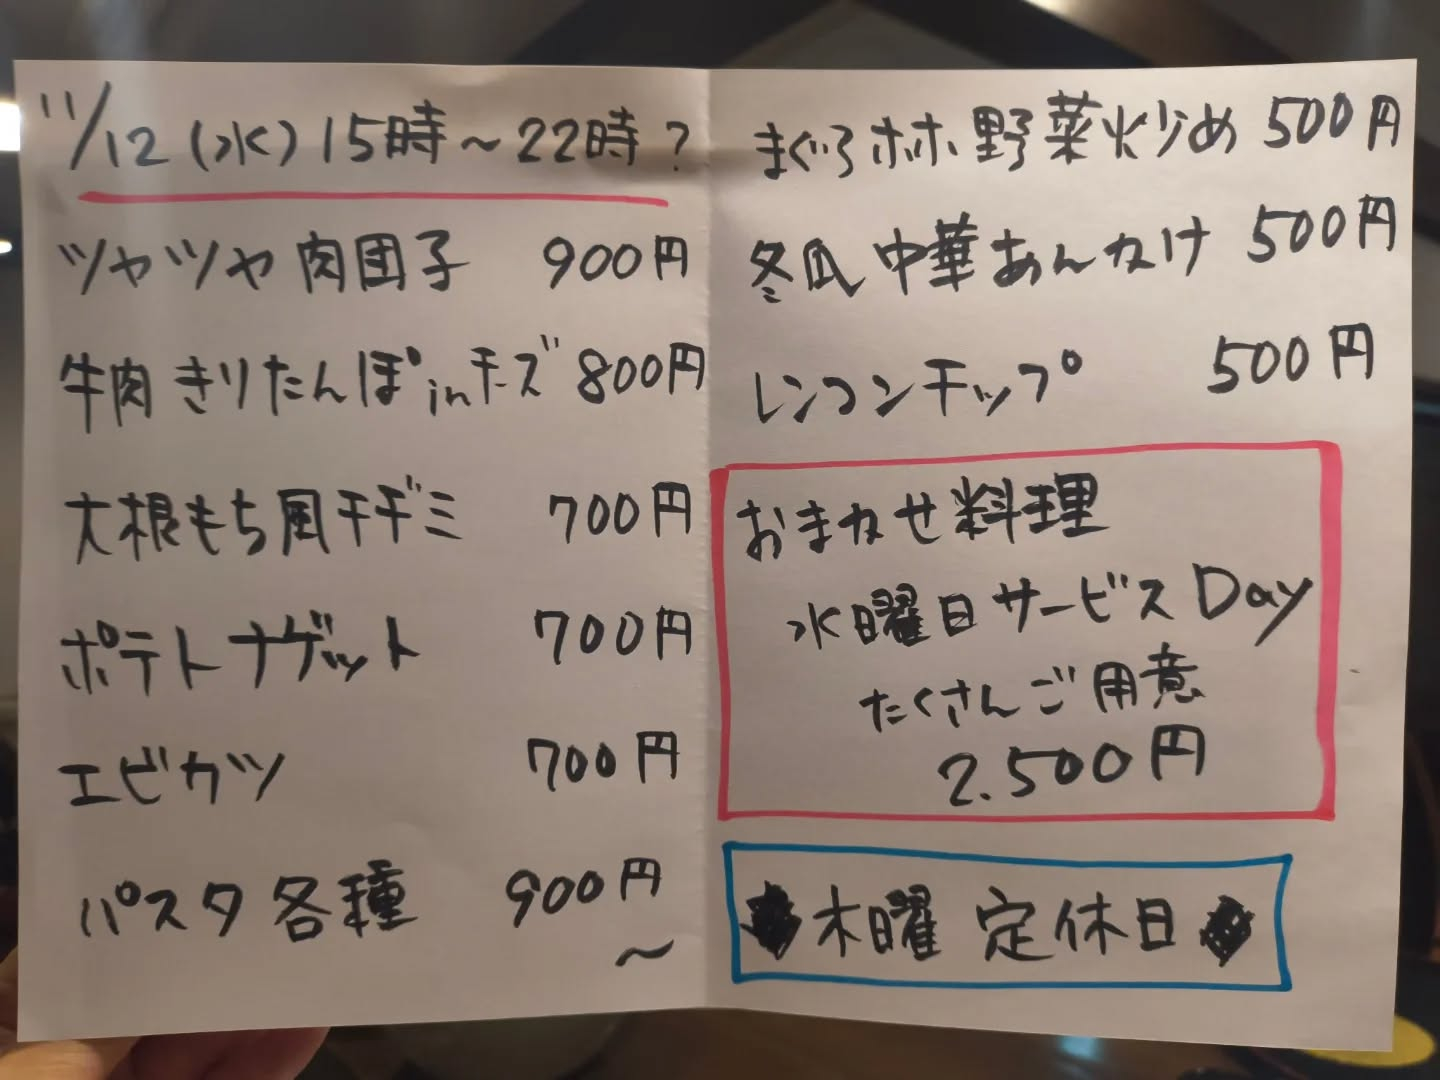 11/12(水)15時〜22時?
ツヤツヤ肉団子 900円
牛肉きりたんぽinチーズ 800円
大根もち風チヂミ 700円
ポテトナゲット 700円
エビカツ 700円
パスタ各種 900円〜
まぐろホホ野菜炒め 500円
冬瓜中華あんかけ 500円
レンコンチップ 500円
おまかせ料理
水曜日サービスDay
たくさんご用意
2.500円
◆木曜 定休日◆